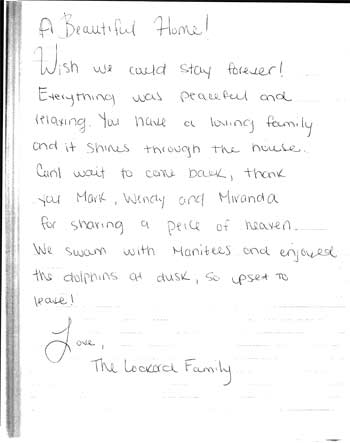 A Beautiful Home!
Wish we could stay forever!
Everything was peaceful and
relaxing. You have a loving family
and it shines through the house.
Can't wait to come back, thank
you Mark, Wendy and Miranda
for sharing a peice of heaven.
We swam with Manitees and enjoyed
the dolphins at dusk, so upset to
leave!
Love,
The Lockard Family